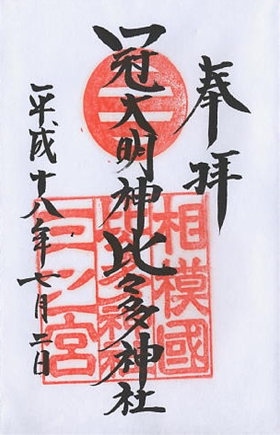 奉拝
冠大明神 比々多神社
平成十八年七月二日
相模國
三ノ宮